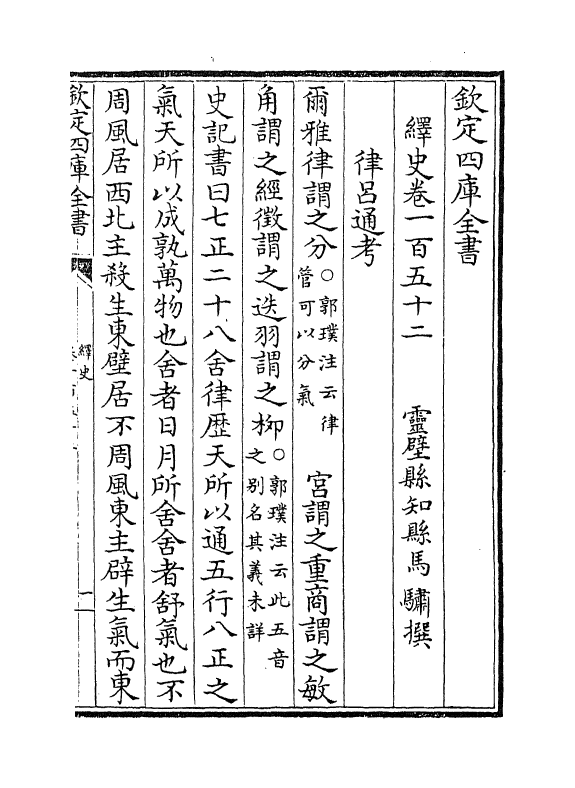 欽定四庫全書
繹史卷一百五十二　靈壁縣知縣馬驌撰
律呂通考
爾雅律謂之分○郭璞注云律管可以分氣　宮謂之重商謂之敏
角謂之經徵謂之迭羽謂之桺○郭璞注云此五音之别名其義未詳
史記書曰七正二十八舍律歴天所以通五行八正之
氣天所以成孰萬物也舍者日月所舍舍者舒氣也不
周風居西北主殺生東壁居不周風東主辟生氣而東
欽定四庫全書
繹史
一